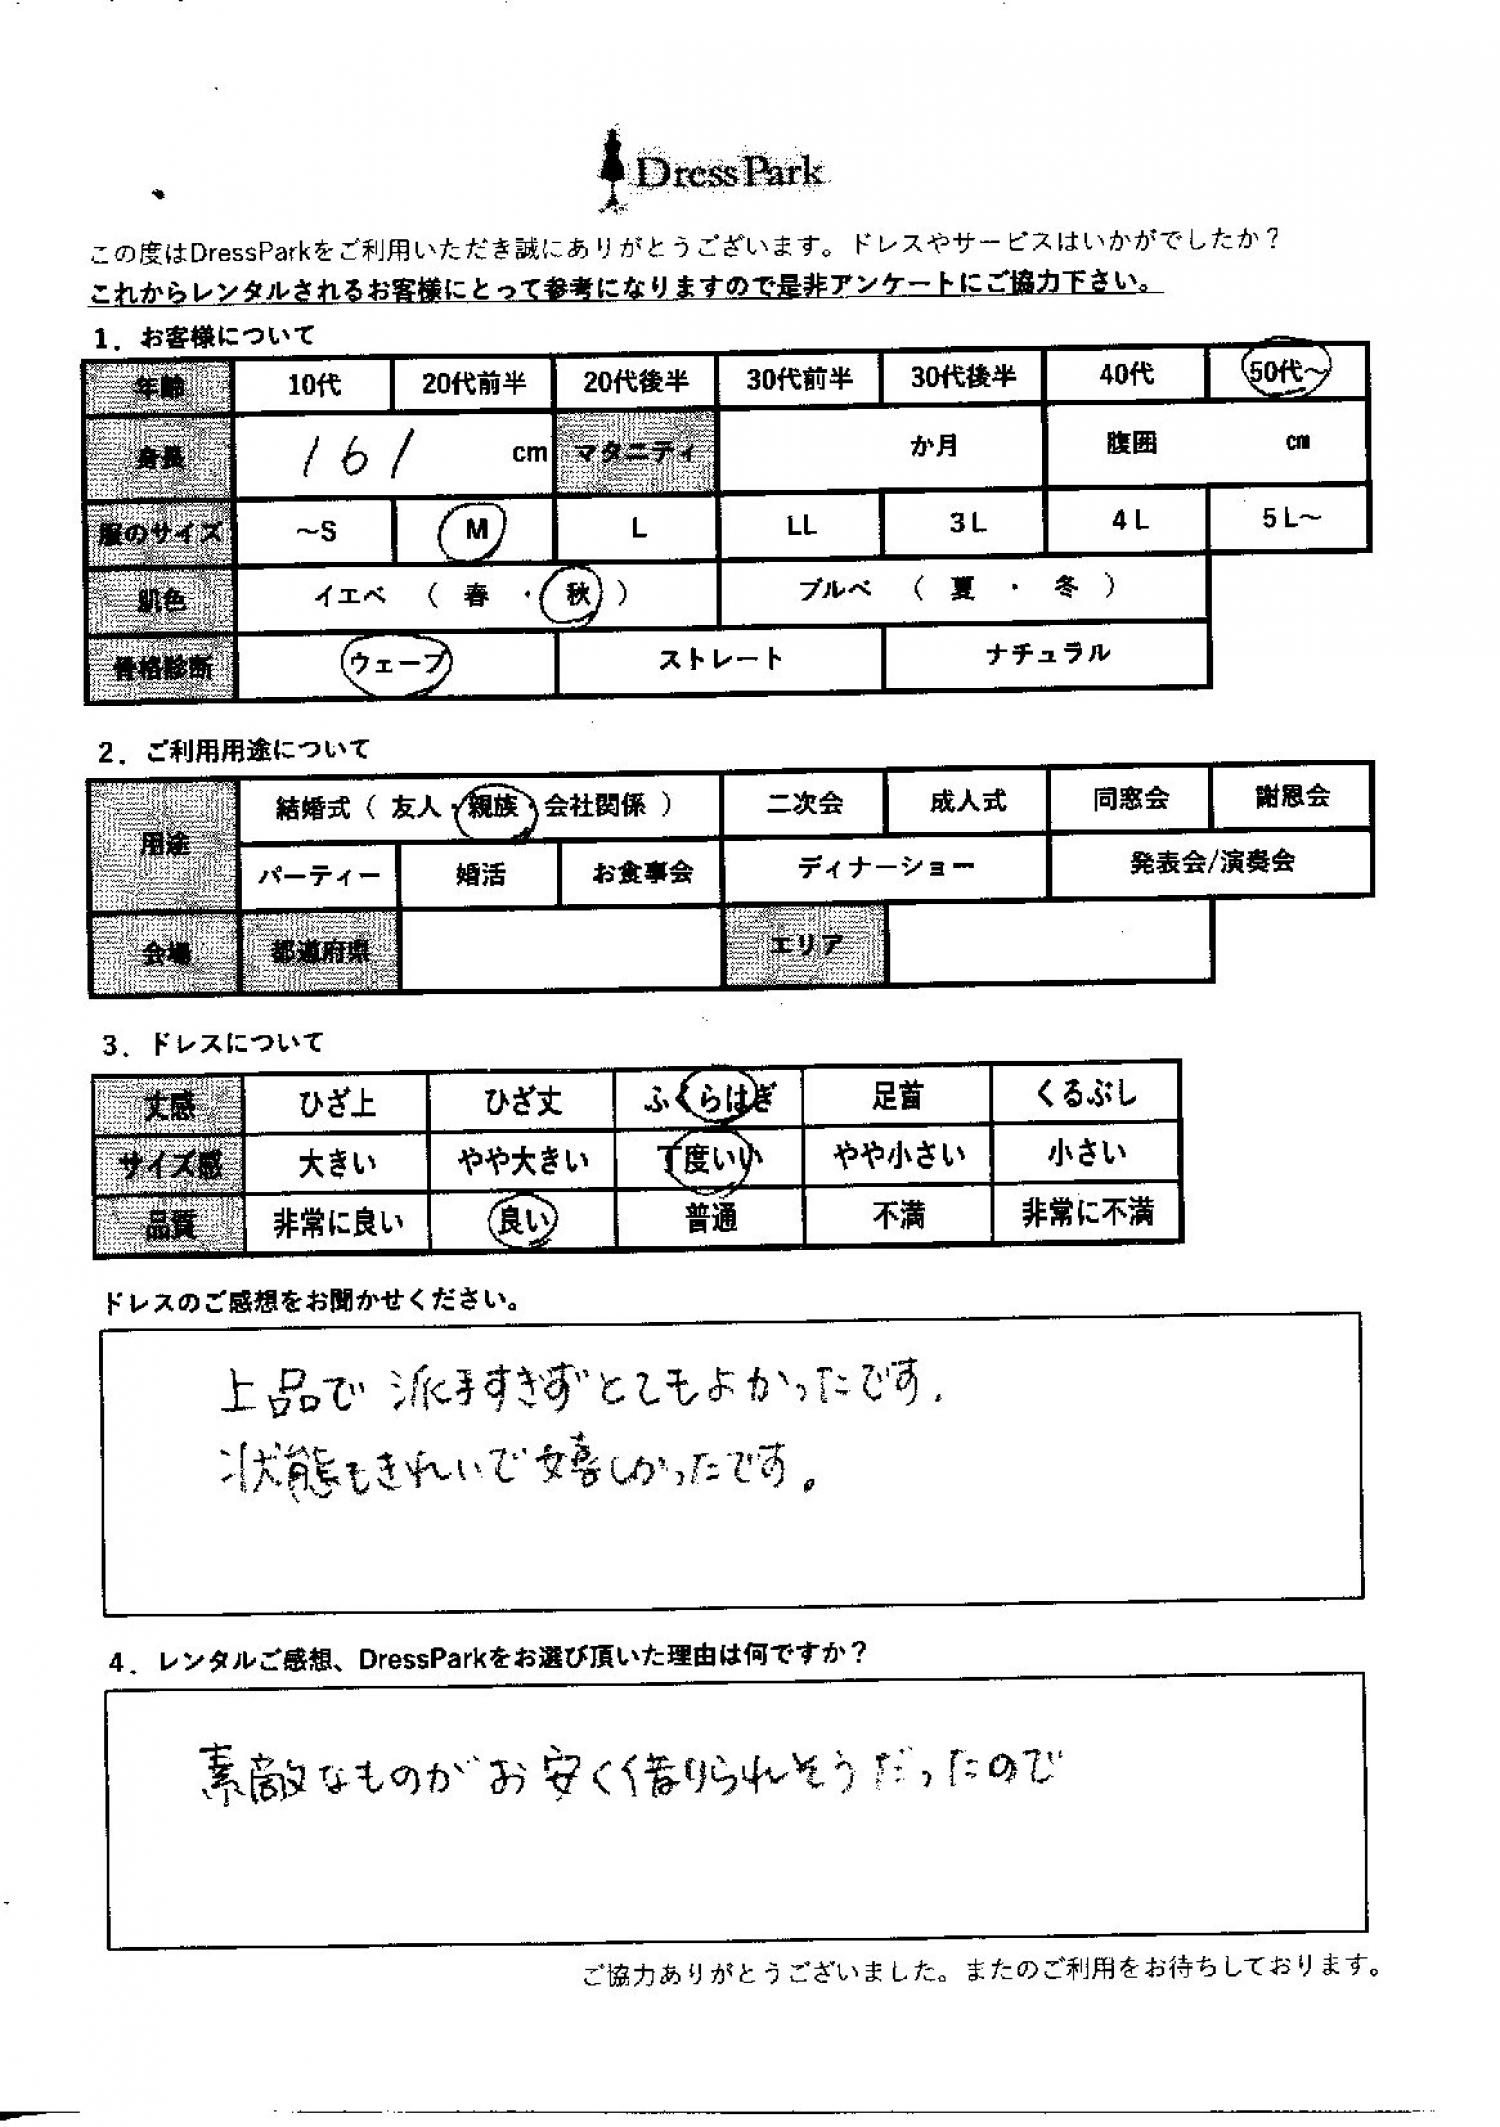 DressPark
この度はDressParkをご利用いただき誠にありがとうございます。ドレスやサービスはいかがでしたか？
これからレンタルされるお客様にとって参考になりますので是非アンケートにご協力下さい。
1．お客様について
年齢 10代 20代前半 20代後半 30代前半 30代後半 40代 50代～
身長 161 cm マタニティ か月 腹囲 cm
服のサイズ ～S M L LL 3L 4L 5L～
肌色 イエベ （ 春 ・ 秋 ） ブルベ （ 夏 ・ 冬 ）
骨格診断 ウェーブ ストレート ナチュラル
2．ご利用用途について
用途 結婚式（ 友人・親族・会社関係 ） 二次会 成人式 同窓会 謝恩会
パーティー 婚活 お食事会 ディナーショー 発表会/演奏会
会場 都道府県 エリア
3．ドレスについて
丈感 ひざ上 ひざ丈 ふくらはぎ 足首 くるぶし
サイズ感 大きい やや大きい 丁度いい やや小さい 小さい
品質 非常に良い 良い 普通 不満 非常に不満
ドレスのご感想をお聞かせください。
上品で派手すぎずとてもよかったです。
状態もきれいで嬉しかったです。
4．レンタルご感想、DressParkをお選び頂いた理由は何ですか？
素敵なものがお安く借りられそうだったので
ご協力ありがとうございました。またのご利用をお待ちしております。